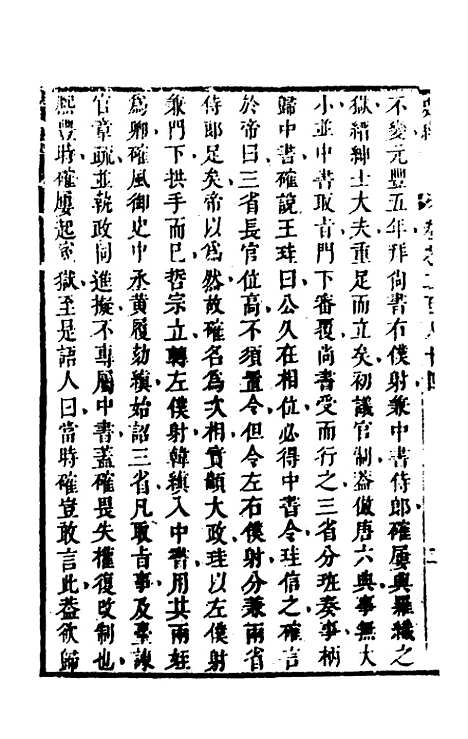 不變元豐五年拜尚書右僕射兼中書侍郎確屢興羅織之
獄縉紳士大夫重足而立矣初議官制蓋倣唐六典事無大
小並中書取旨門下審覆尚書受而行之三省分班奏事柄
歸中書確說王珪曰公久在相位必得中書令珪信之確言
於帝曰三省長官位高不須置令但令左右僕射分兼兩省
侍郎足矣帝以爲然故確名爲次相實顓大政珪以左僕射
兼門下拱手而已哲宗立轉左僕射韓縝入中書用其兩姪
爲卿確風御史中丞黃履劾縝始詔三省凡取旨事及臺諫
官章疏並執政同進擬不專屬中書蓋確畏失權復改制也
熙豐時確屢起冤獄至是語人曰當時確豈敢言此蓋欲歸
二